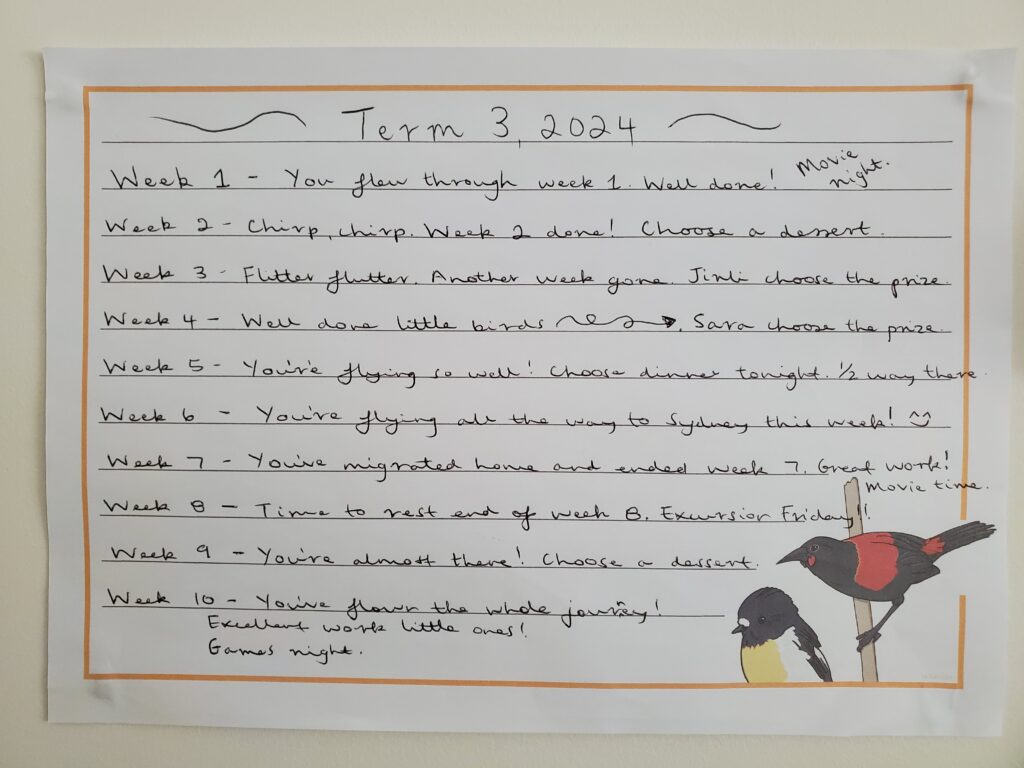 Term 3, 2024
Week 1 - You flew through week 1. Well done! Movie night.
Week 2 - Chirp, chirp. Week 2 done! Choose a dessert.
Week 3 - Flutter flutter. Another week gone. Jinli choose the prize.
Week 4 - Well done little birds. Sara choose the prize.
Week 5 - You're flying so well! Choose dinner tonight. 1/2 way there
Week 6 - You're flying all the way to Sydney this week!
Week 7 - You've migrated home and ended week 7. Great work!
Movie time.
Week 8 - Time to rest end of week 8. Excursion Friday!!
Week 9 - You're almost there! Choose a dessert.
Week 10 - You've flown the whole journey!
Excellent work little ones!
Games night.